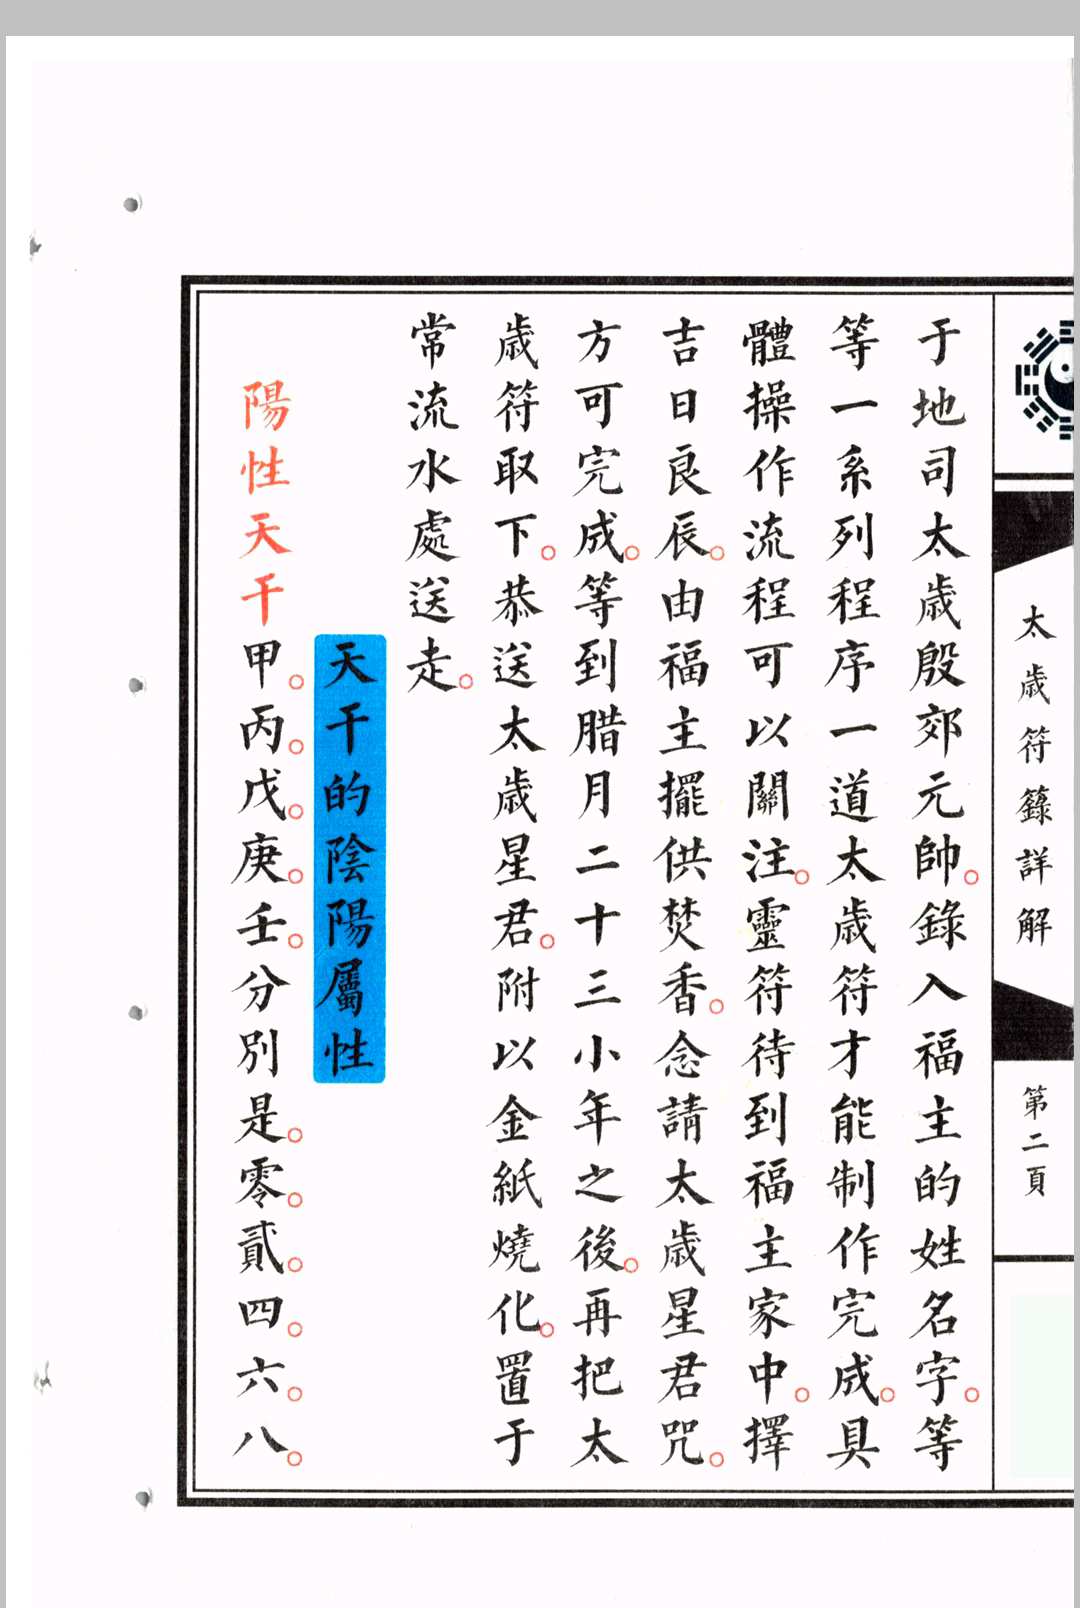 太歲符籙詳解
第二頁
于地司太歲殷郊元帥。錄入福主的姓名字。等
等一系列程序一道太歲符才能制作完成。具
體操作流程可以關注。靈符待到福主家中。擇
吉日良辰。由福主擺供焚香。念請太歲星君咒。
方可完成。等到腊月二十三小年之後。再把太
歲符取下。恭送太歲星君。附以金紙燒化。置于
常流水處送走。
天干的陰陽屬性
陽性天干甲。丙。戊。庚。壬。分別是。零。貳。四。六。八。